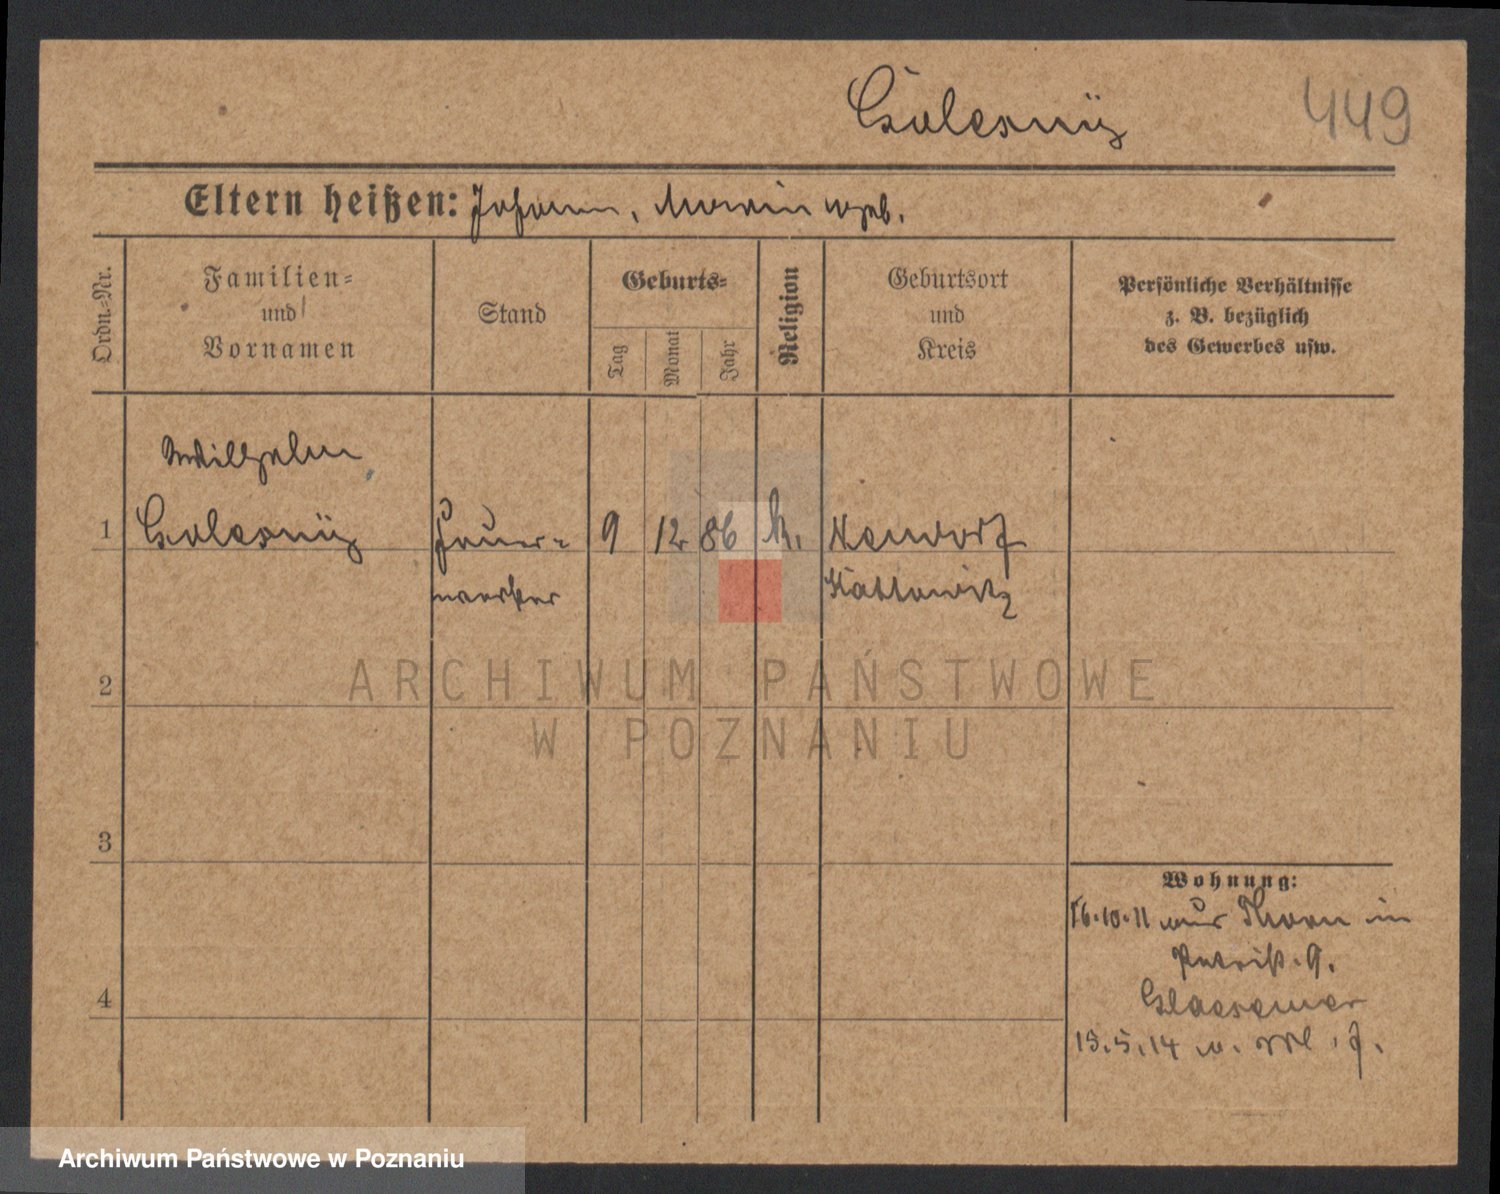 449
Eltern heißen: Johann,
Ordn.-Nr.
Familien=
und
Vornamen
Stand
Geburts=
Tag
Monat
Jahr
Religion
Geburtsort
und
Kreis
Persönliche Verhältnisse
z. B. bezüglich
des Gewerbes usw.
Wilhelm
1
Feuer=
9
12
86
k.
Neudorf
werker
Kattowitz
2
ARCHIWUM PAŃSTWOWE
W POZNANIU
3
Wohnung:
16.10.11 aus Thorn in
Petrist. 9.
4
15.5.14
Archiwum Państwowe w Poznaniu